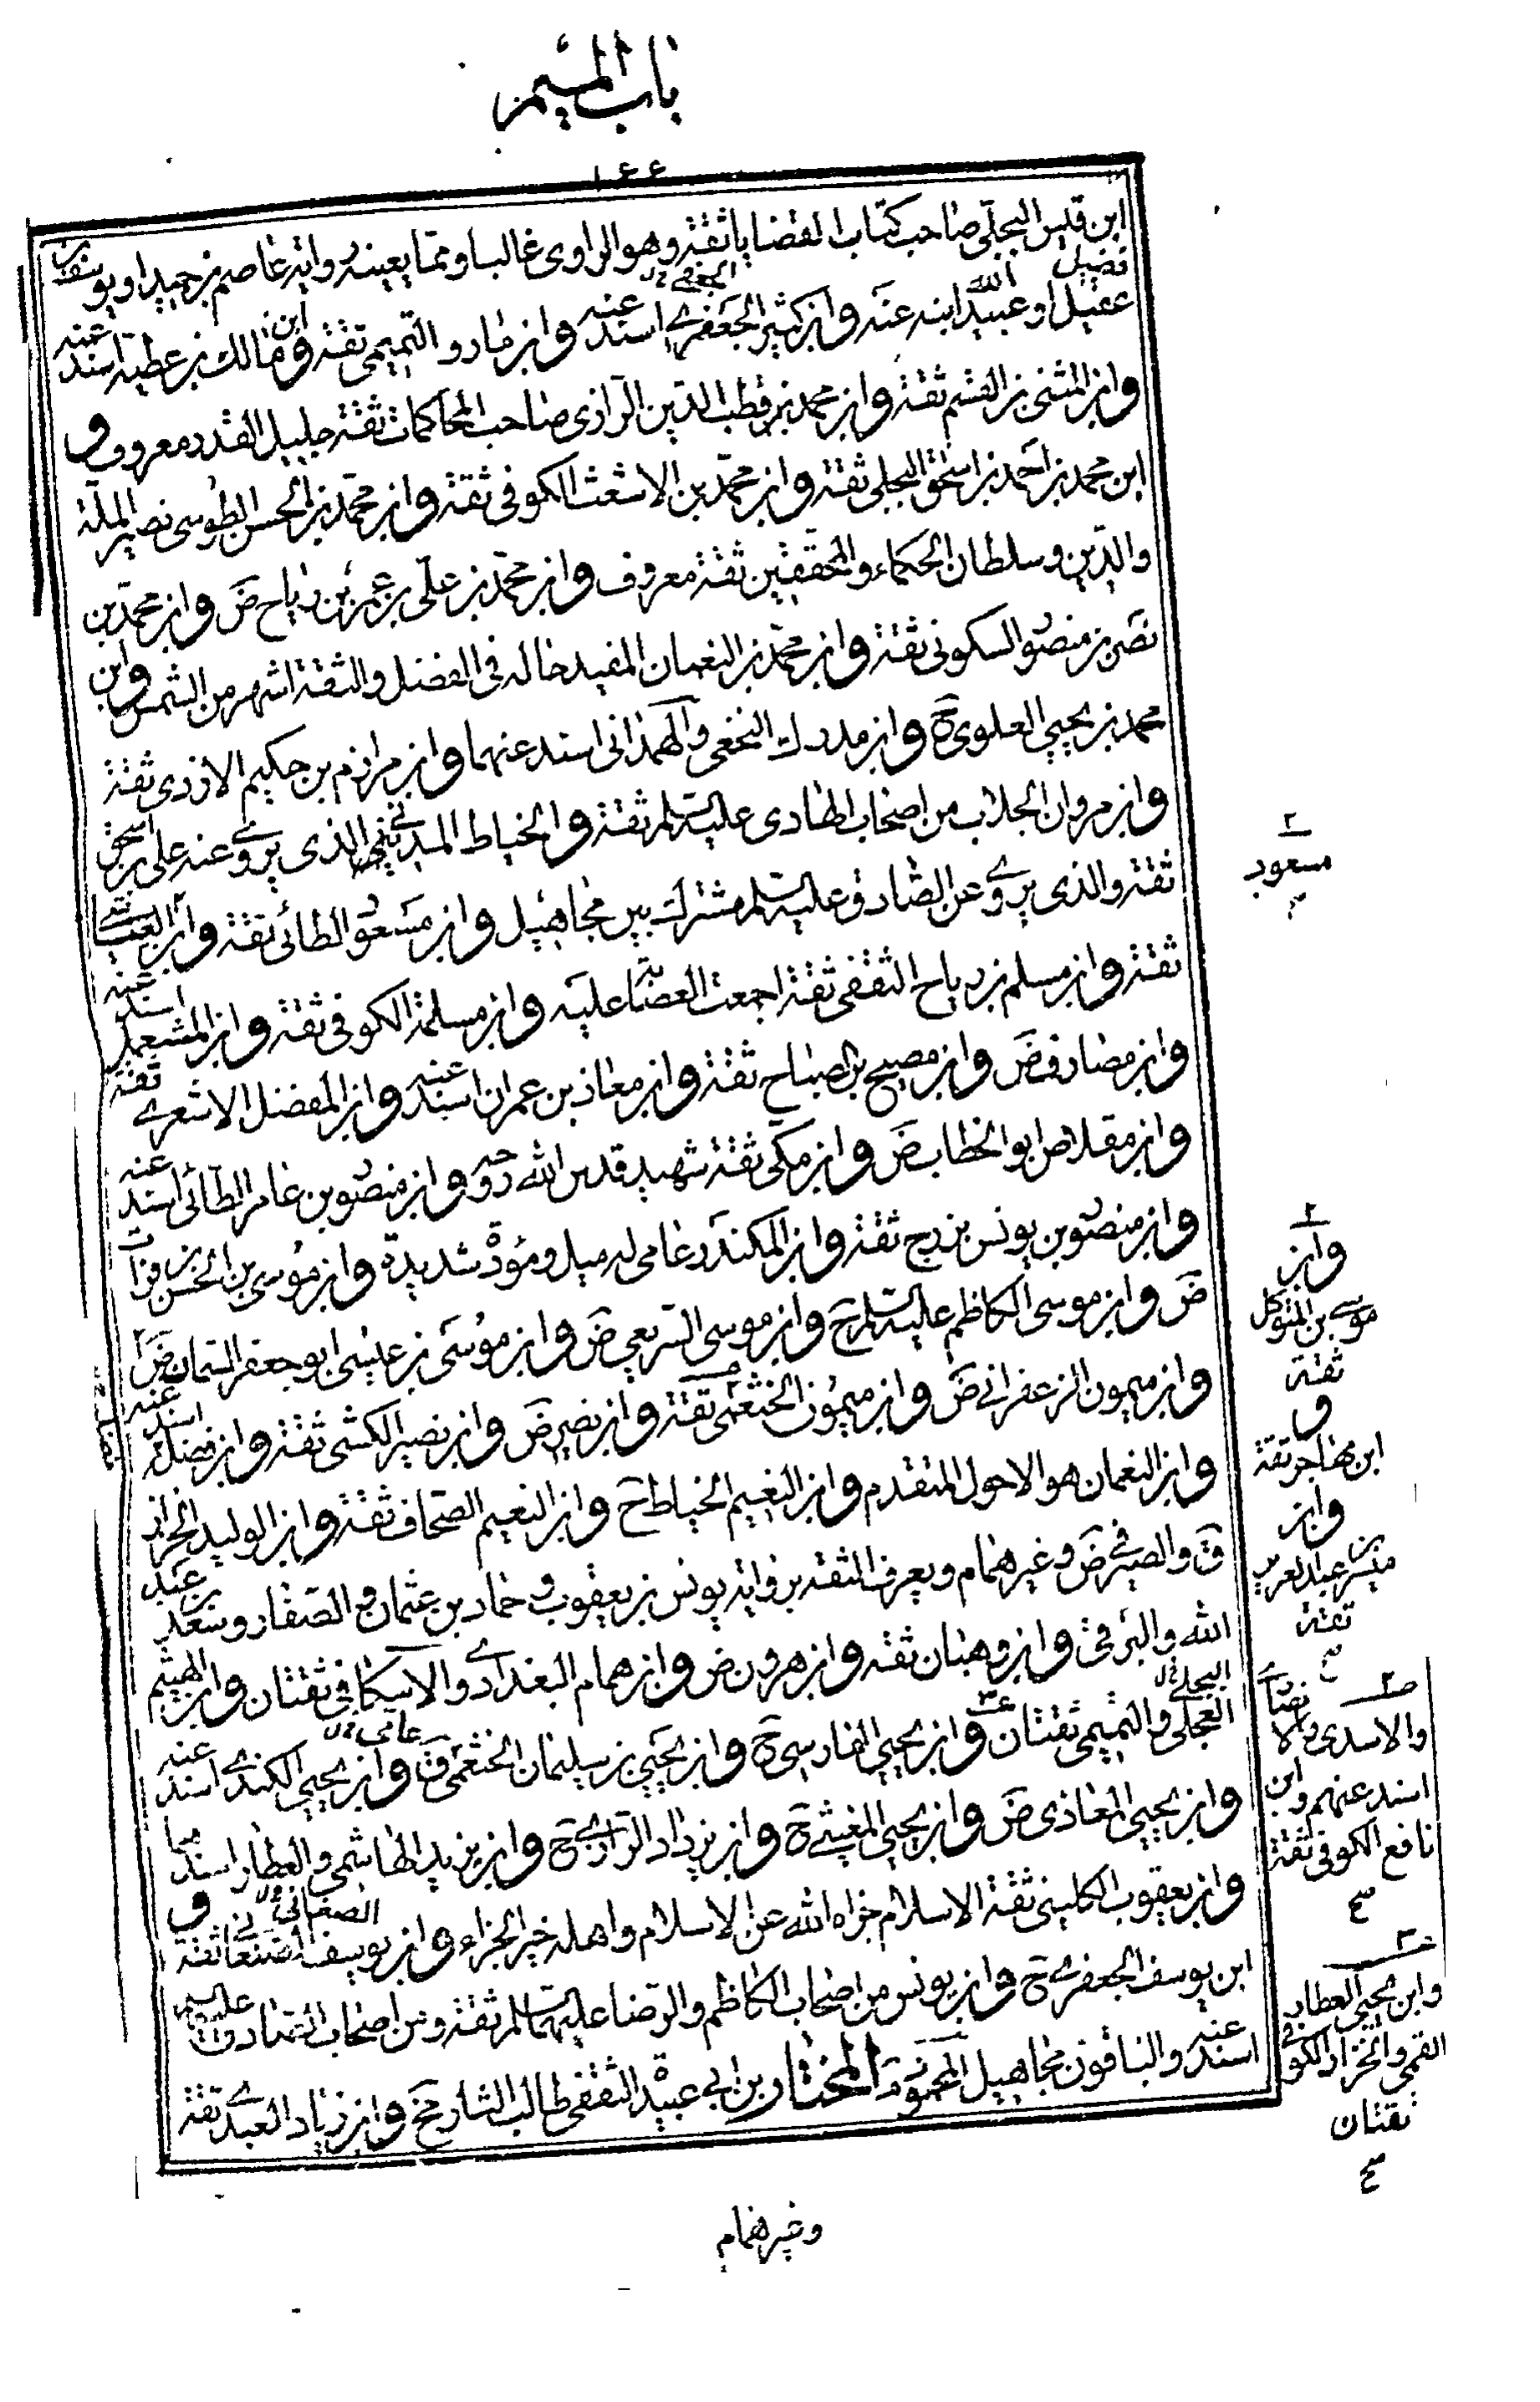 باب الميم
١٤٤
ابن قيس البجلي صاحب كتاب القضايا ثقة وهو الراوي غالبا ومما يعينه رواية عاصم بن حميد او يوسف بن
عقيل او عبيد ابنه عنه وابن كثير الجعفري اسند عنه وابن مارد التميمي ثقة وابن مالك بن عطية اسند عنه
وابن المثنى بن القسم ثقة وابن محمد بن قطب الدين الرازي صاحب المحاكمات ثقة جليل القدر معروف و
ابن محمد بن احمد بن اسحق البجلي ثقة وابن محمد بن الاشعث الكوفي ثقة وابن محمد بن الحسن الطوسي نصير الملة
والدين وسلطان الحكماء والمحققين ثقة معروف وابن محمد بن علي بن عمر بن رباح ض وابن محمد بن
نصر بن منصور السكوني ثقة وابن محمد بن النعمان المفيد حاله في الفضل والثقة اشهر من الشمس وابن
محمد بن يحيى العلوي ح وابن مدرك النخعي والهمداني اسند عنهما وابن مرازم بن حكيم الازدي ثقة
وابن مروان الجلاب من اصحاب الهادي عليه السلم ثقة والخياط المديني الذي يروي عنه علي بن اسحق
ثقة والذي يروي عن الصادق عليه السلم مشترك بين مجاهيل وابن مسعود الطائي ثقة وابن العياشي
ثقة وابن مسلم بن رباح الثقفي ثقة اجمعت العصابة عليه وابن مسلمة الكوفي ثقة وابن المشمعل اسند عنه
وابن مصادف ض وابن مصبح بن الصباح ثقة وابن معاذ بن عمران اسند عنه وابن المفضل الاشعري ثقة
وابن مقلاص ابو الخطاب ض وابن مكي ثقة شهيد قدس الله روحه وابن منصور بن عامر الطائي اسند عنه
وابن منصور بن يونس بزرج ثقة وابن المكندر عامي له ميل ومودة شديدة وابن موسى بن الحسن بن فرات
ض وابن موسى الكاظم عليه السلم ح وابن موسى السريعي ض وابن موسى بن عيسى ابو جعفر السمان ض
وابن ميمون الزعفراني ض وابن ميمون الخثعمي ثقة وابن نصير ض وابن نصير الكشي ثقة وابن فضلة اسند عنه
وابن النعمان هو الاحول المتقدم وابن النعيم الخياط ح وابن النعيم الصحاف ثقة وابن الوليد الخزاز
ق والصيرفي ض وغيرهما م ويعرف الثقة برواية يونس بن يعقوب وحماد بن عثمان والصفار وسعد بن عبد
الله والبرقي وابن وهبان ثقة وابن هرون ض وابن همام البغدادي والاسكافي ثقتان وابن الهيثم
العجلي والتميمي ثقتان وابن يحيى الفارسي ح وابن يحيى بن سليمان الخثعمي ق وابن يحيى الكندي اسند عنه
وابن يحيى المعاذي ض وابن يحيى المغيثي ح وابن يزداد الرازي ح وابن يزيد الهاشمي والعطار اسند عنهما
وابن يعقوب الكليني ثقة الاسلام جزاه الله عن الاسلام واهله خير الجزاء وابن يوسف الصنعاني ثقة و
ابن يوسف الجعفري ح وابن يونس من اصحاب الكاظم والرضا عليهما السلم ثقة ومن اصحاب الصادق عليه السلم
اسند عنه والباقون مجاهيل المختار بن ابي عبيد الثقفي طالب الثار مخ وابن زياد العبدي ثقة
وغيرهما م
فضيل
الله
الجعفي ل
البجلي ل
عامي ل
الصغاني ل
مسعود
وابن
موسى بن المتوكل
ثقة
و
ابن مهاجر ثقة
وابن
ميسر بن عبد العزيز
ثقة
صح
والاسدي
اسند عنهم وابن
نافع الكوفي ثقة
صح
وابن يحيى العطار
القمي والخزاز الكوفي
ثقتان
صح